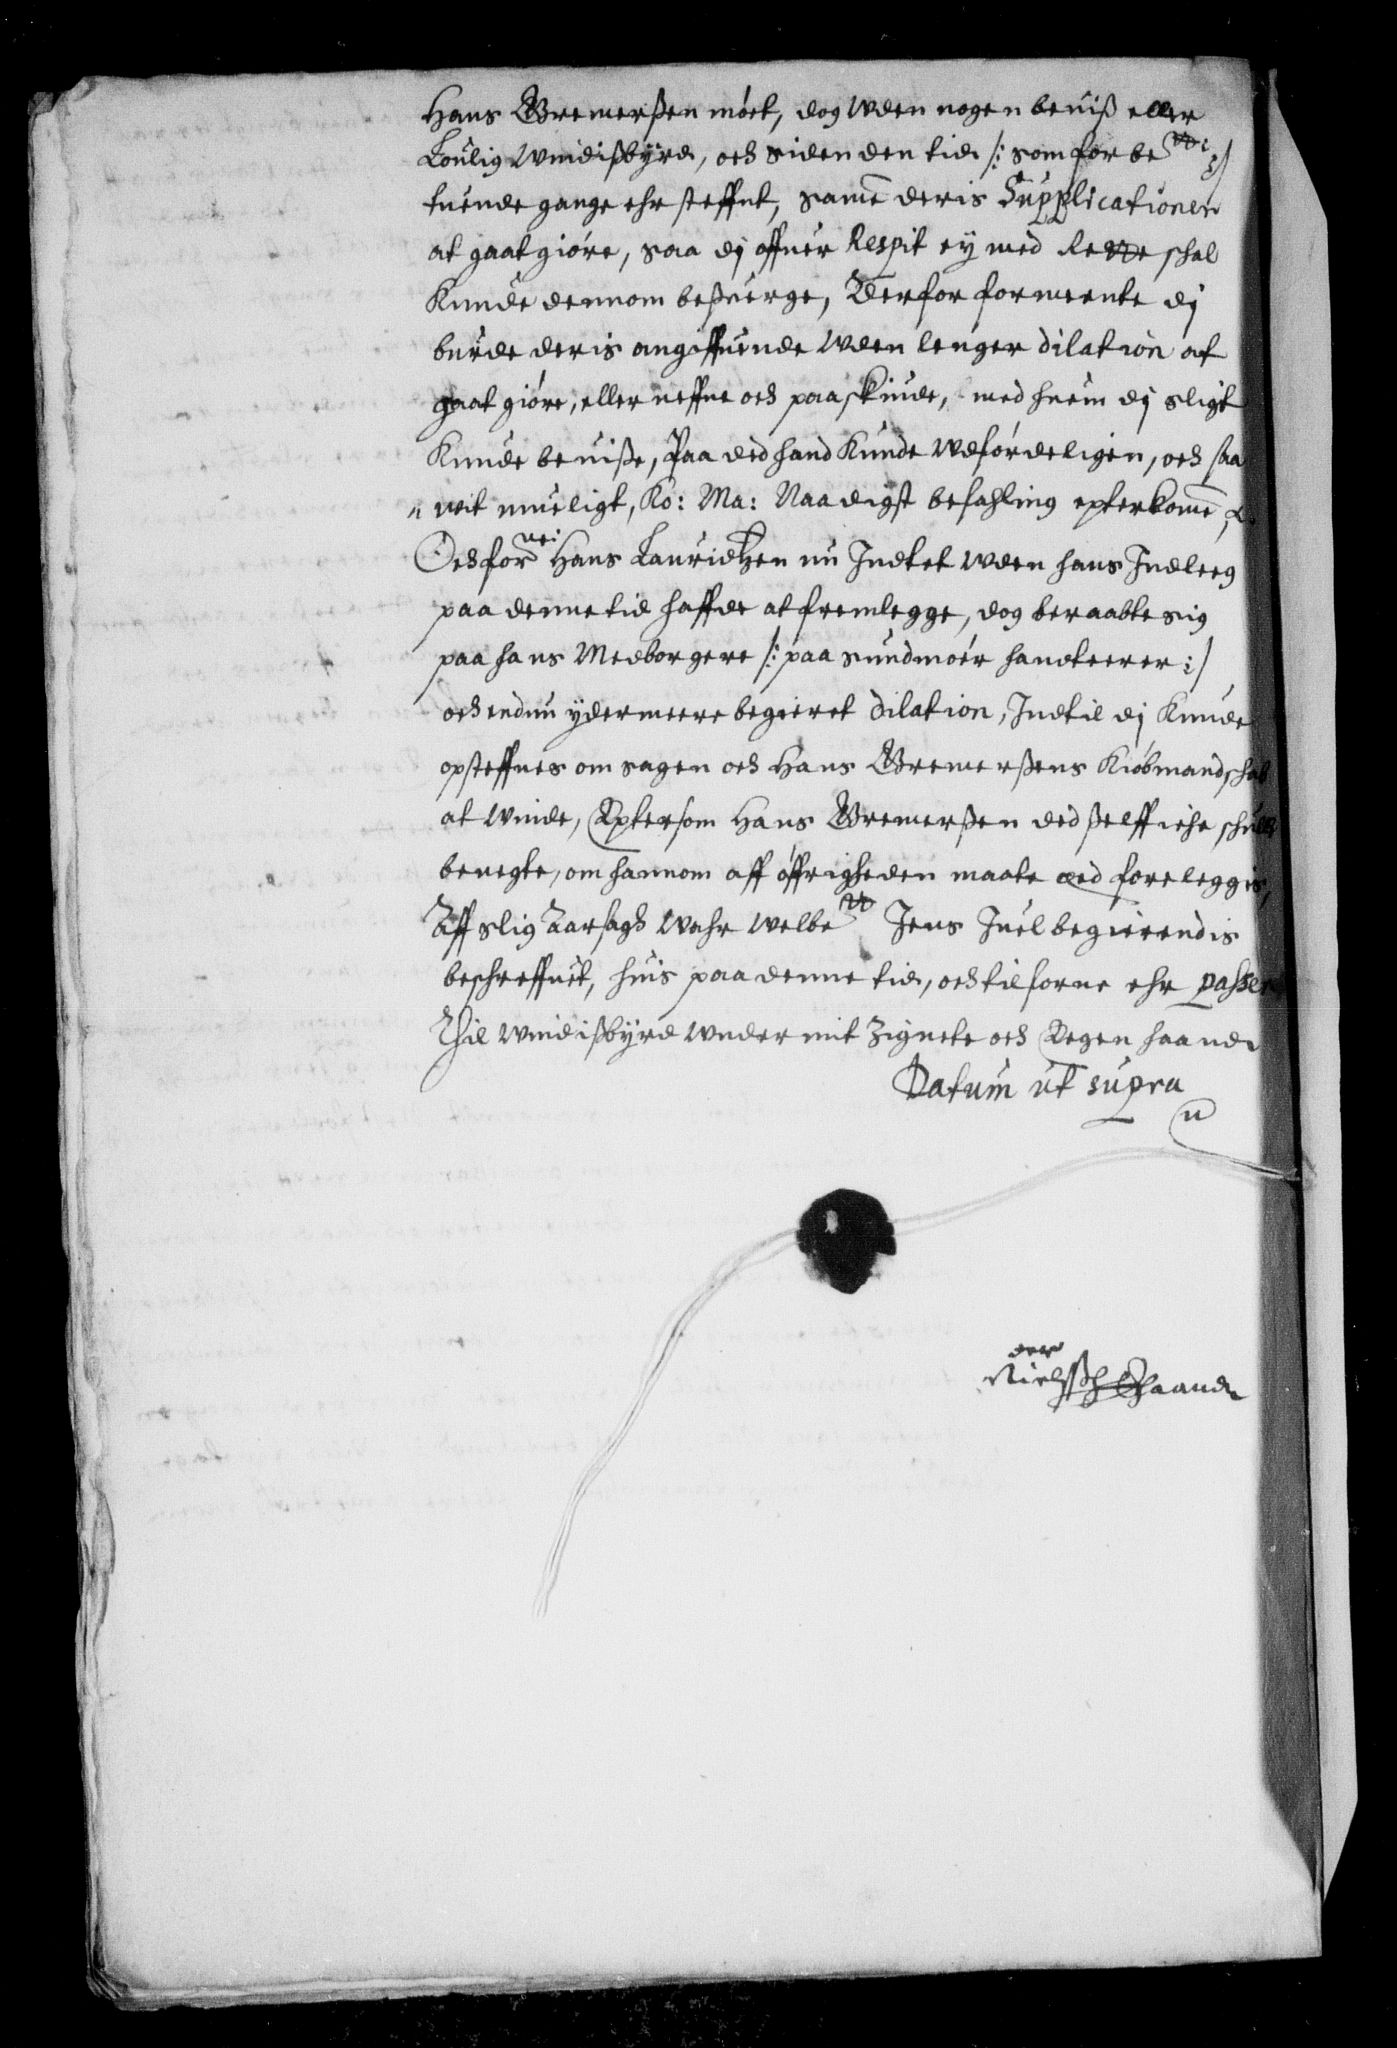 Hans Bremerßen móet, dog uden nogen beuiß eller
Louliig Windißbÿrd, och siden den tid /: som for be:dt :/
tuende gange ehr steffnt, same deris Supplicationer
at gaatgióre, saa dj offuer Respit ej med Rette schal
Kunde dennom beßuerge, Derfor formeente dj
burde deris angiffuende Uden lenger dilation at
gaatgióre, eller neffne och paaskiude, med huem dj sligt
Kunde beuiße, Paa ded hand Kunde Udfórdeligen, och saa
wit mueligt, Ko: Ma: Naadigst befahling epterkome,
Och for:nei Hans Lauridtzen nu Indtet uden hans Indleeg
paa denne tid haffde at fremlegge, dog beraabte sig
paa hans Medborgere /: paa sundmoér handteerer :/
och endnu ÿdermeere begieret dilation, Indtil dj Kunde
opsteffnes om sagen och Hans Bremerßens Kióbmandschab
at Winde, Eptersom Hans Bremerßen ded selff iche schulle
benegte, om hannom aff óffrigheden maate æd foreleggis,
Aff slig Aarsagh Wahr Welbe:dt Jens Juel begierendis
beschreffuet, huis paa denne tid, och tilforne ehr passeret
Thil Windißbÿrd Under mit Zignete och Eegen haand
Datum ut supra